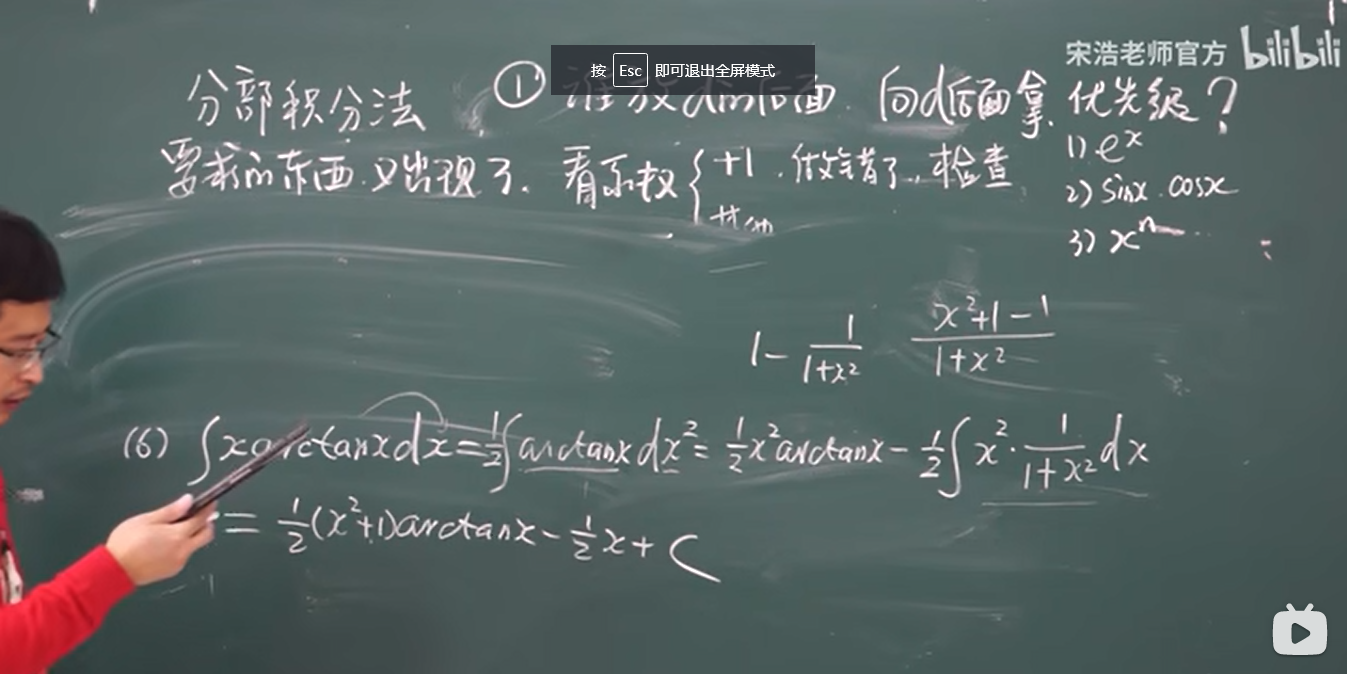 宋浩老师官方 bilibili
按 Esc 即可退出全屏模式
分部积分法 ① 谁放d的后面. 向d后面拿. 优先级?
1) e^x
2) sinx. cosx
3) x^n ...
要求的东西又出现了. 看系数 { +1. 做错了, 检查
其他
1 - 1/(1+x²) (x²+1-1)/(1+x²)
(6) ∫x arctanx dx = 1/2 ∫arctanx dx² = 1/2 x² arctanx - 1/2 ∫x² · 1/(1+x²) dx
= 1/2 (x²+1) arctanx - 1/2 x + C